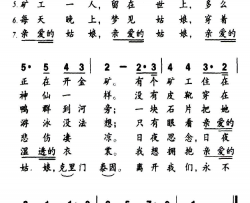 5. 矿工一人,留在世上,多么
6. 每天晚上,梦见姑娘,穿着
7. 亲爱的姑娘,亲爱的姑娘,亲爱的
5· 5 5·3 | 2 – 2·3 | 4 4 3·2
正在开金矿。有个矿工住在
神仙一样。没有皮靴穿在
鸭群到河旁;一块石片把她
游泳没法想;只有眼看亲爱的
悲伤凄凉。日夜思念,日夜
湿透的衣裳。我想拥抱亲爱的
姑娘,克里门泰因。离开我们,永不